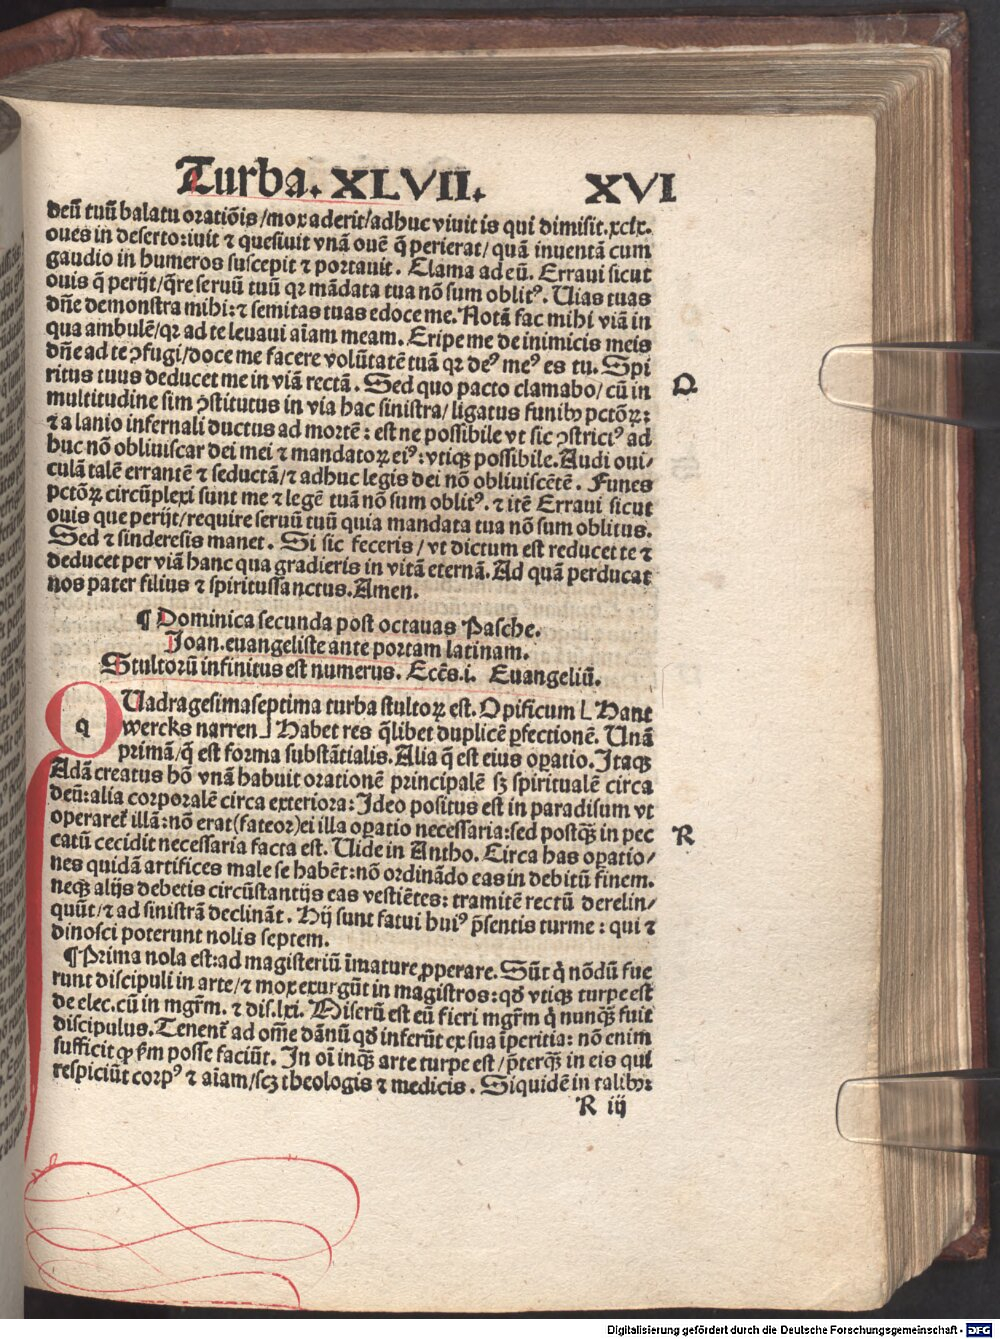 Turba. XLVII. XVI
deū tuū balatu oratiōis/mox aderit/adhuc viuit is qui dimisit.xclx.
oues in deserto:iuit ⁊ quesiuit vnā ouē q̄ perierat/ quā inuentā cum
gaudio in humeros suscepit ⁊ portauit. Clama ad eū. Erraui sicut
ouis q̄ perijt/q̄re seruū tuū qꝛ mādata tua nō sum oblitꝰ. Uias tuas
dñe demonstra mihi:⁊ semitas tuas edoce me. Notā fac mihi viā in
qua ambulē/qꝛ ad te leuaui aīam meam. Eripe me de inimicis meis
dñe ad te ꝯfugi/doce me facere volūtatē tuā qꝛ deꝰ meꝰ es tu. Spi
ritus tuus deducet me in viā rectā. Sed quo pacto clamabo/ cū in
Q
multitudine sim ꝯstitutus in via hac sinistra/ ligatus funibꝫ pctōꝝ:
⁊ a lanio infernali ductus ad mortē: est ne possibile vt sic ꝯstrictꝰ ad
huc nō obliuiscar dei mei ⁊ mandatoꝝ eiꝰ: vtiqꝫ possibile. Audi oui/
culā talē errantē ⁊ seductā/⁊ adhuc legis dei nō obliuiscētē. Funes
pctōꝝ circūplexi sunt me ⁊ legē tuā nō sum oblitꝰ. ⁊ itē Erraui sicut
ouis que perijt/require seruū tuū quia mandata tua nō sum oblitus.
Sed ⁊ sinderesis manet. Si sic feceris/ vt dictum est reducet te ⁊
deducet per viā hanc qua gradieris in vitā eternā. Ad quā perducat
nos pater filius ⁊ spiritussanctus. Amen.
¶ Dominica secunda post octauas Pasche.
Joan. euangeliste ante portam latinam.
Stultorū infinitus est numerus. Eccēs.i. Euangeliū.
q
QUadragesimaseptima turba stultoꝝ est. Opificum [ Hant
wercks narren ] Habet res q̄libet duplicē ꝑfectionē. Unā
primā/q̄ est forma substātialis. Alia q̄ est eius oꝑatio. Itaqꝫ
Adā creatus hō vnā habuit orationē principalē sꝫ spiritualē circa
deū:alia corporalē circa exteriora: Ideo positus est in paradisum vt
operaret̉ illā:nō erat(fateor)ei illa oꝑatio necessaria:sed postqꝫ̄ in pec
R
catū cecidit necessaria facta est. Uide in Antho. Circa has oꝑatio/
nes quidā artifices male se habēt:nō ordināndo eas in debitū finem.
neqꝫ alijs debetis circūstantijs eas vestiētes: tramitē rectū derelin/
quūt/⁊ ad sinistrā declināt. Hij sunt fatui huiꝰ p̄sentis turme: qui ⁊
dinosci poterunt nolis septem.
¶Prima nola est:ad magisteriū īmature ꝓperare. Sūt q̄ nōdū fue
runt discipuli in arte/⁊ mox exurgūt in magistros:qđ vtiqꝫ turpe est
de elec.cū in mgr̄m. ⁊ dis.lxi. Miserū est eū fieri mgr̄m q̄ nunqꝫ̄ fuit
discipulus. Tenent̉ ad om̄e dānū qđ inferūt ex sua īperitia: nō enim
sufficit ꝙ ẜm posse faciūt. In oī inqꝫ̄ arte turpe est/ p̄terqꝫ̄ in eis qui
respiciūt corpꝰ ⁊ aīam/scꝫ theologis ⁊ medicis. Siquidē in talibꝫ:
R iij
Digitalisierung gefördert durch die Deutsche Forschungsgemeinschaft - DFG